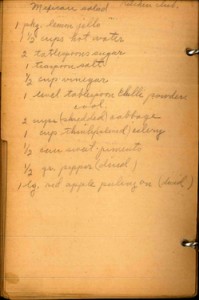 Mexican salad
1 pkg. lemon jello
1½ cups hot water
2 tablespoons sugar
1 teaspoon salt
½ cup vinegar
1 level tablespoon chille powder
cool
2 cups (shredded) cabbage
1 cup thinly (sliced) celery
½ can sweet pimento
½ gr. pepper (diced)
1 lg. red apple peeling on (diced)